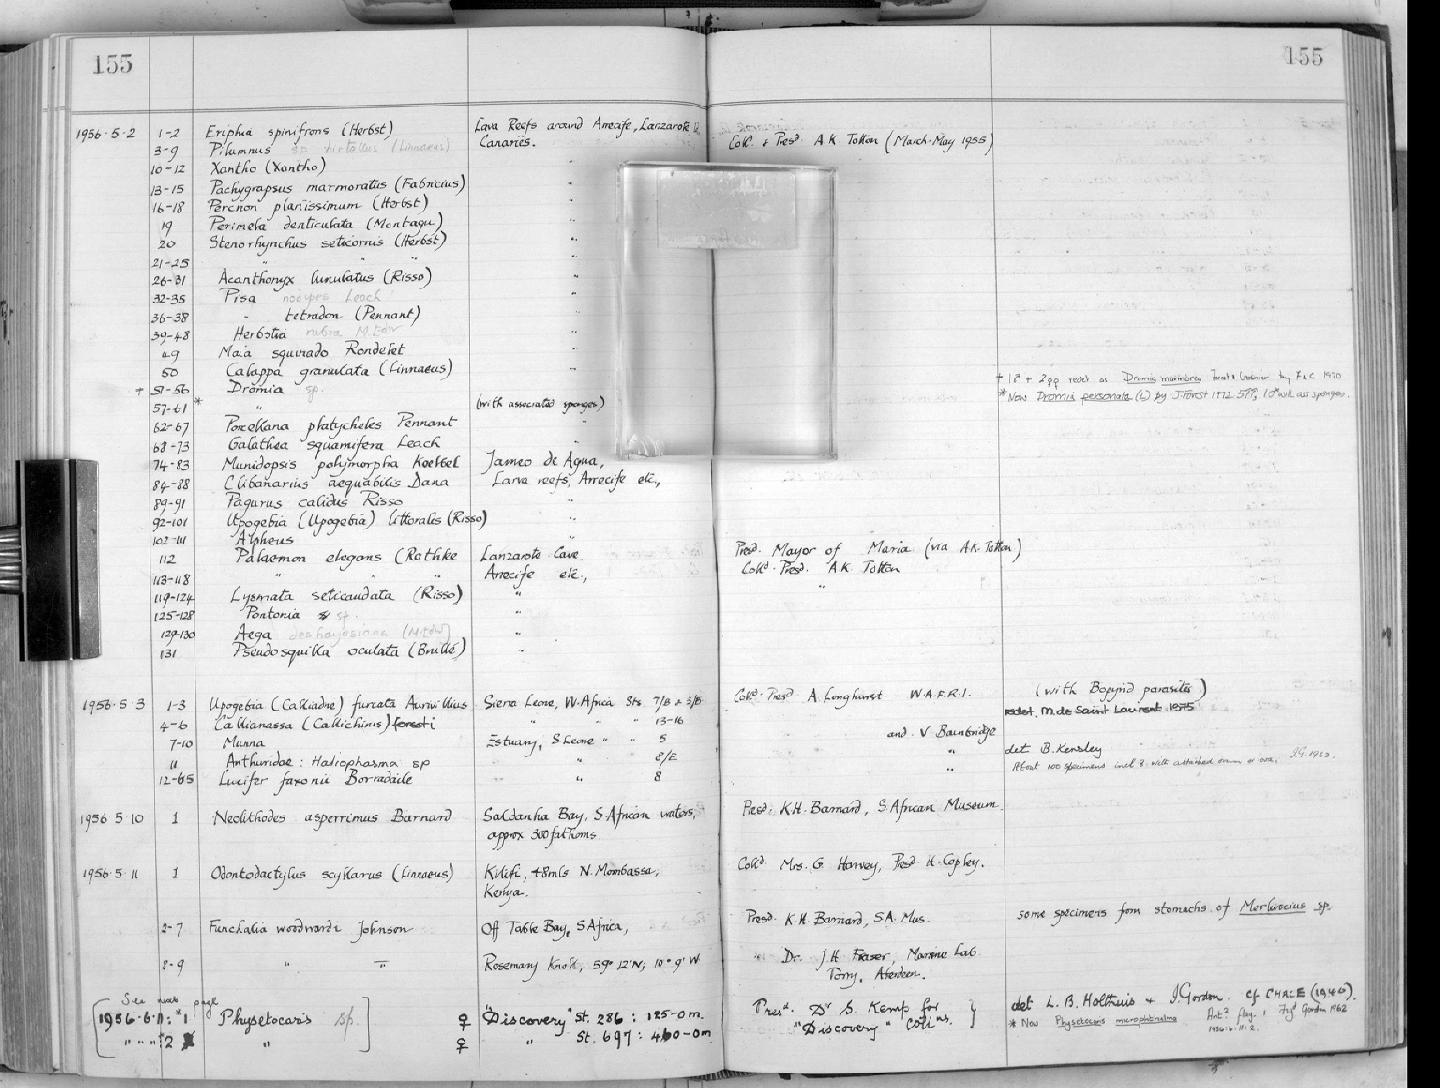 155 155
1956·5·2 1-2 Eriphia spinifrons (Herbst) Lava Reefs around Arrecife, Lanzarote
3-9 Pilumnus sp hirtellus (Linnaeus) Canaries. Coll. & Presd. A K Totton (March-May 1955)
10-12 Xantho (Xantho) "
13-15 Pachygrapsus marmoratus (Fabricius) "
16-18 Percnon planissimum (Herbst) "
19 Perimela denticulata (Montagu) "
20 Stenorhynchus seticornis (Herbst) "
21-25 " " " "
26-31 Acanthonyx lunulatus (Risso) "
32-35 Pisa nodipes Leach "
36-38 - tetradon (Pennant) "
39-48 Herbstia rubra M.Edw "
49 Maia squinado Rondelet "
50 Calappa granulata (Linnaeus) "
+ 51-56 Dromia sp. + 1♂ + 2♀♀ redet. as Dromia marmorea 1970
57-61 * " (with associated sponges) * Now Dromia personata (L) by J. Forest 1972
62-67 Porcellana platycheles Pennant "
68-73 Galathea squamifera Leach "
74-83 Munidopsis polymorpha Koelbel Jameo de Agua,
84-88 Clibanarius aequabilis Dana Larva reefs, Arrecife etc.,
89-91 Pagurus calidus Risso "
92-101 Upogebia (Upogebia) littoralis (Risso) "
102-111 Alpheus "
112 Palaemon elegans (Rathke Lanzarote Cave Presd. Mayor of Maria (via A.K. Totton)
113-118 " " " Arrecife etc., Colld. Presd. A K Totton
119-124 Lysmata seticaudata (Risso) " "
125-128 Pontonia sp. "
129-130 Aega deshayesiana (M.Edw) "
131 Pseudosquilla oculata (Brullé) "
1956·5·3 1-3 Upogebia (Calliadne) furcata Aurivillius Sierra Leone, W. Africa Sts. 7/B & 3/B Colld. Presd. A. Longhurst W.A.F.R.I. (with Bopyrid parasites)
4-6 Callianassa (Callichirus) foresti " " " 13-16 redet. M. de Saint Laurent 1975
7-10 Munna Estuary, S Leone " " 5 and V Bainbridge
11 Anthuridae: Haliophasma sp " 2/E " det B. Kensley
12-65 Lucifer faxonii Borradaile " " 8 " About 100 specimens incl ♀ with attached ova. I.G. 1960.
1956 5 10 1 Neolithodes asperrimus Barnard Saldanha Bay, S. African waters, Presd. K.H. Barnard, S. African Museum
approx 300 fathoms
1956·5·11 1 Odontodactylus scyllarus (Linnaeus) Kilifi, 48mls N. Mombassa, Colld. Mrs. G. Harvey, Presd H. Copley.
Kenya.
2-7 Funchalia woodwardi Johnson Off Table Bay, S Africa, Presd. K.H. Barnard, SA. Mus. some specimens from stomachs of Merluccius sp.
8-9 " " Rosemary Knoll, 59° 12'N; 10° 9' W " Dr. J.H Fraser, Marine Lab.
Torry, Aberdeen.
See next page
1956·6·11: *1 Physetocaris sp. ♀ "Discovery" St. 286 : 125-0 m. Presd. Dr S. Kemp for det L. B. Holthuis & I. Gordon. cf CHACE (1940).
" " " : 2 " ♀ " St. 697 : 460-0 m "Discovery" Collns. * Now Physetocaris microphthalma Gordon 1962
1956·6·11·2.